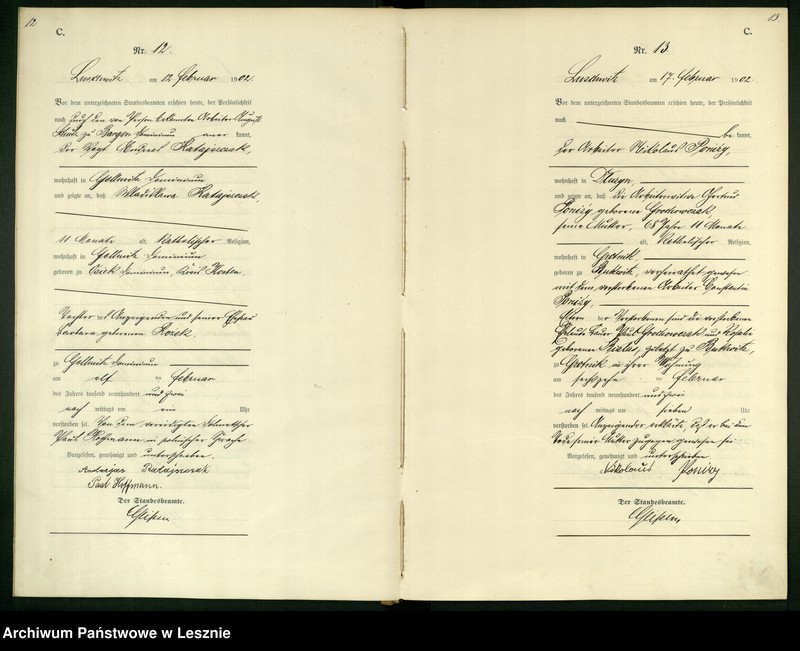 12
C.
Nr. 12.
Luschwitz am 12. Februar 1902.
Vor dem unterzeichneten Standesbeamten erschien heute, der Persönlichkeit
nach durch den von Person bekannten Arbeiter August
zu Bargen Dominium anerkannt,
der Vogt Ratajszczak,
wohnhaft in Gollmitz Dominium
und zeigte an, daß Wladislawa Ratajszczak,
11 Monate alt, katholischer Religion,
wohnhaft in Gollmitz Dominium
geboren zu Dominium, Kreis Kosten,
Tochter des Anzeigenden und seiner Ehefrau
Barbara geborenen Rozek
zu Gollmitz Dominium
am elf ten Februar
des Jahres tausend neunhundert und zwei
nach mittags um ein Uhr
verstorben sei. Von dem vereidigten Dolmetscher
Paul Hoffmann in polnischer Sprache
Vorgelesen, genehmigt und unterschrieben.
Andrzej Ratajszczak
Paul Hoffmann.
Der Standesbeamte.
13.
C.
Nr. 13.
Luschwitz am 17. Februar 1902.
Vor dem unterzeichneten Standesbeamten erschien heute, der Persönlichkeit
nach
be kannt,
der Arbeiter Nikolaus Ponizy,
wohnhaft in
und zeigte an, daß die Arbeiterwitwe
Ponizy geborene Grochowczak,
seine Mutter, 68 Jahre 11 Monate
alt, katholischer Religion,
wohnhaft in Grotnik
geboren zu Bukwitz, verheirathet gewesen
mit dem verstorbenen Arbeiter Constantin
Ponizy,
Eltern der Verstorbenen sind die verstorbenen
Eheleute Jakob Grochowczak und Rosalie
geborene Bialas, zuletzt zu Bukwitz,
zu Grotnik in ihrer Wohnung
am sechszehn ten Februar
des Jahres tausend neunhundert und zwei
nach mittags um sieben Uhr
verstorben sei. Anzeigender erklärte, daß er bei dem
Tode seiner Mutter zugegen gewesen sei
Vorgelesen, genehmigt und unterschrieben
Nikolaus Ponizy
Der Standesbeamte.
Archiwum Państwowe w Lesznie